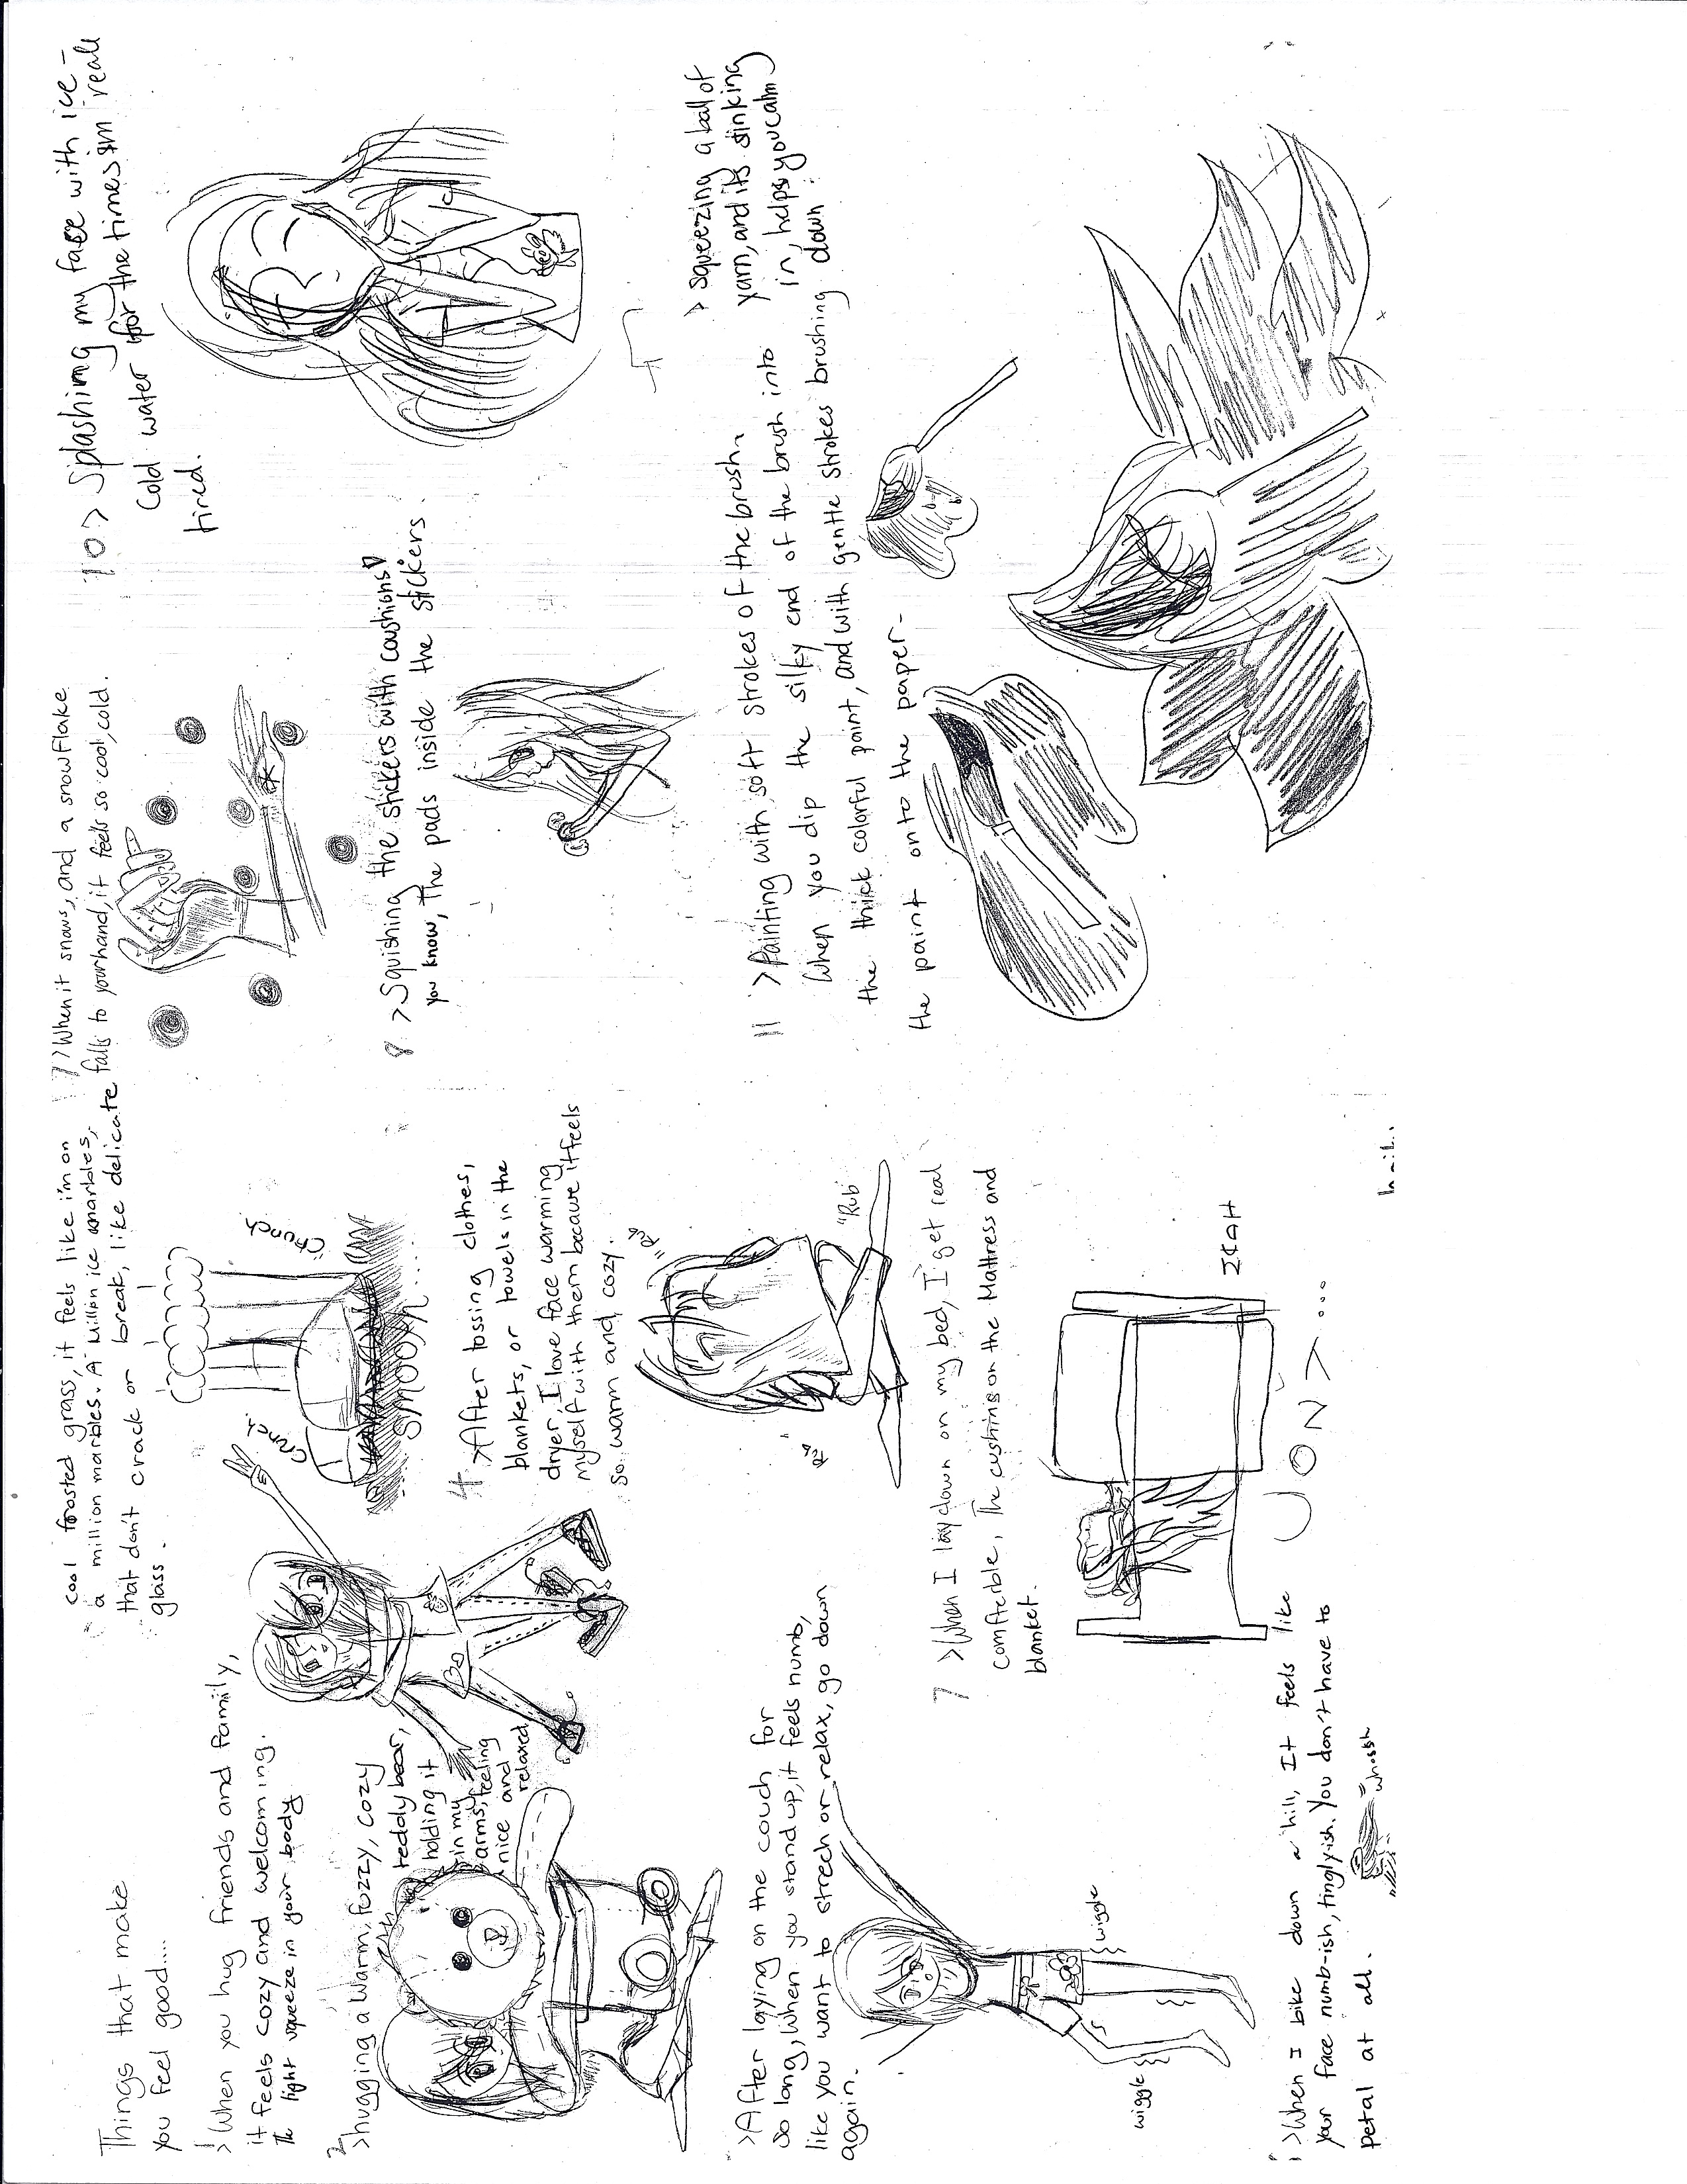 Things that make
you feel good....
1
>When you hug friends and family,
it feels cozy and welcoming.
The light squeeze in your body
2
>hugging a warm, fuzzy, cozy
teddy bear,
holding it
in my
arms, feeling
nice and
relaxed
>After laying on the couch for
so long, when you stand up, it feels numb,
like you want to strech or relax, go down
again.
wiggle
wiggle
>When I bike down a hill, It feels like
your face numb-ish, tinglyish. You don't have to
petal at all.
"whossh
cool frosted grass, it feels like i'm on
a million marbles. A million ice marbles,
that don't crack or break, like delicate
glass.
Crunch
"Crunch
smoosh...
4 >After tossing clothes,
blankets, or towels in the
dryer, I love face warming
myself with them because it feels
so warm and cozy.
"Rub
"Rub
"Rub"
7 >When I lay down on my bed, I get real
comfterible, The cushins on the Mattress and
blanket.
7 >When it snows, and a snowflake
falls to your hand, it feels so cool, cold.
8 >Squishing the stickers with coushions
you know, The pads inside the stickers
10 > Splashing my face with ice -
cold water for the times im reall
tired.
11 >Painting with soft strokes of the brush.
When you dip the silky end of the brush into
the thick colorful paint, and with gentle strokes brushing
the paint onto the paper-
> squeezing a ball of
yarn, and its sinking
in, helps you calm
down